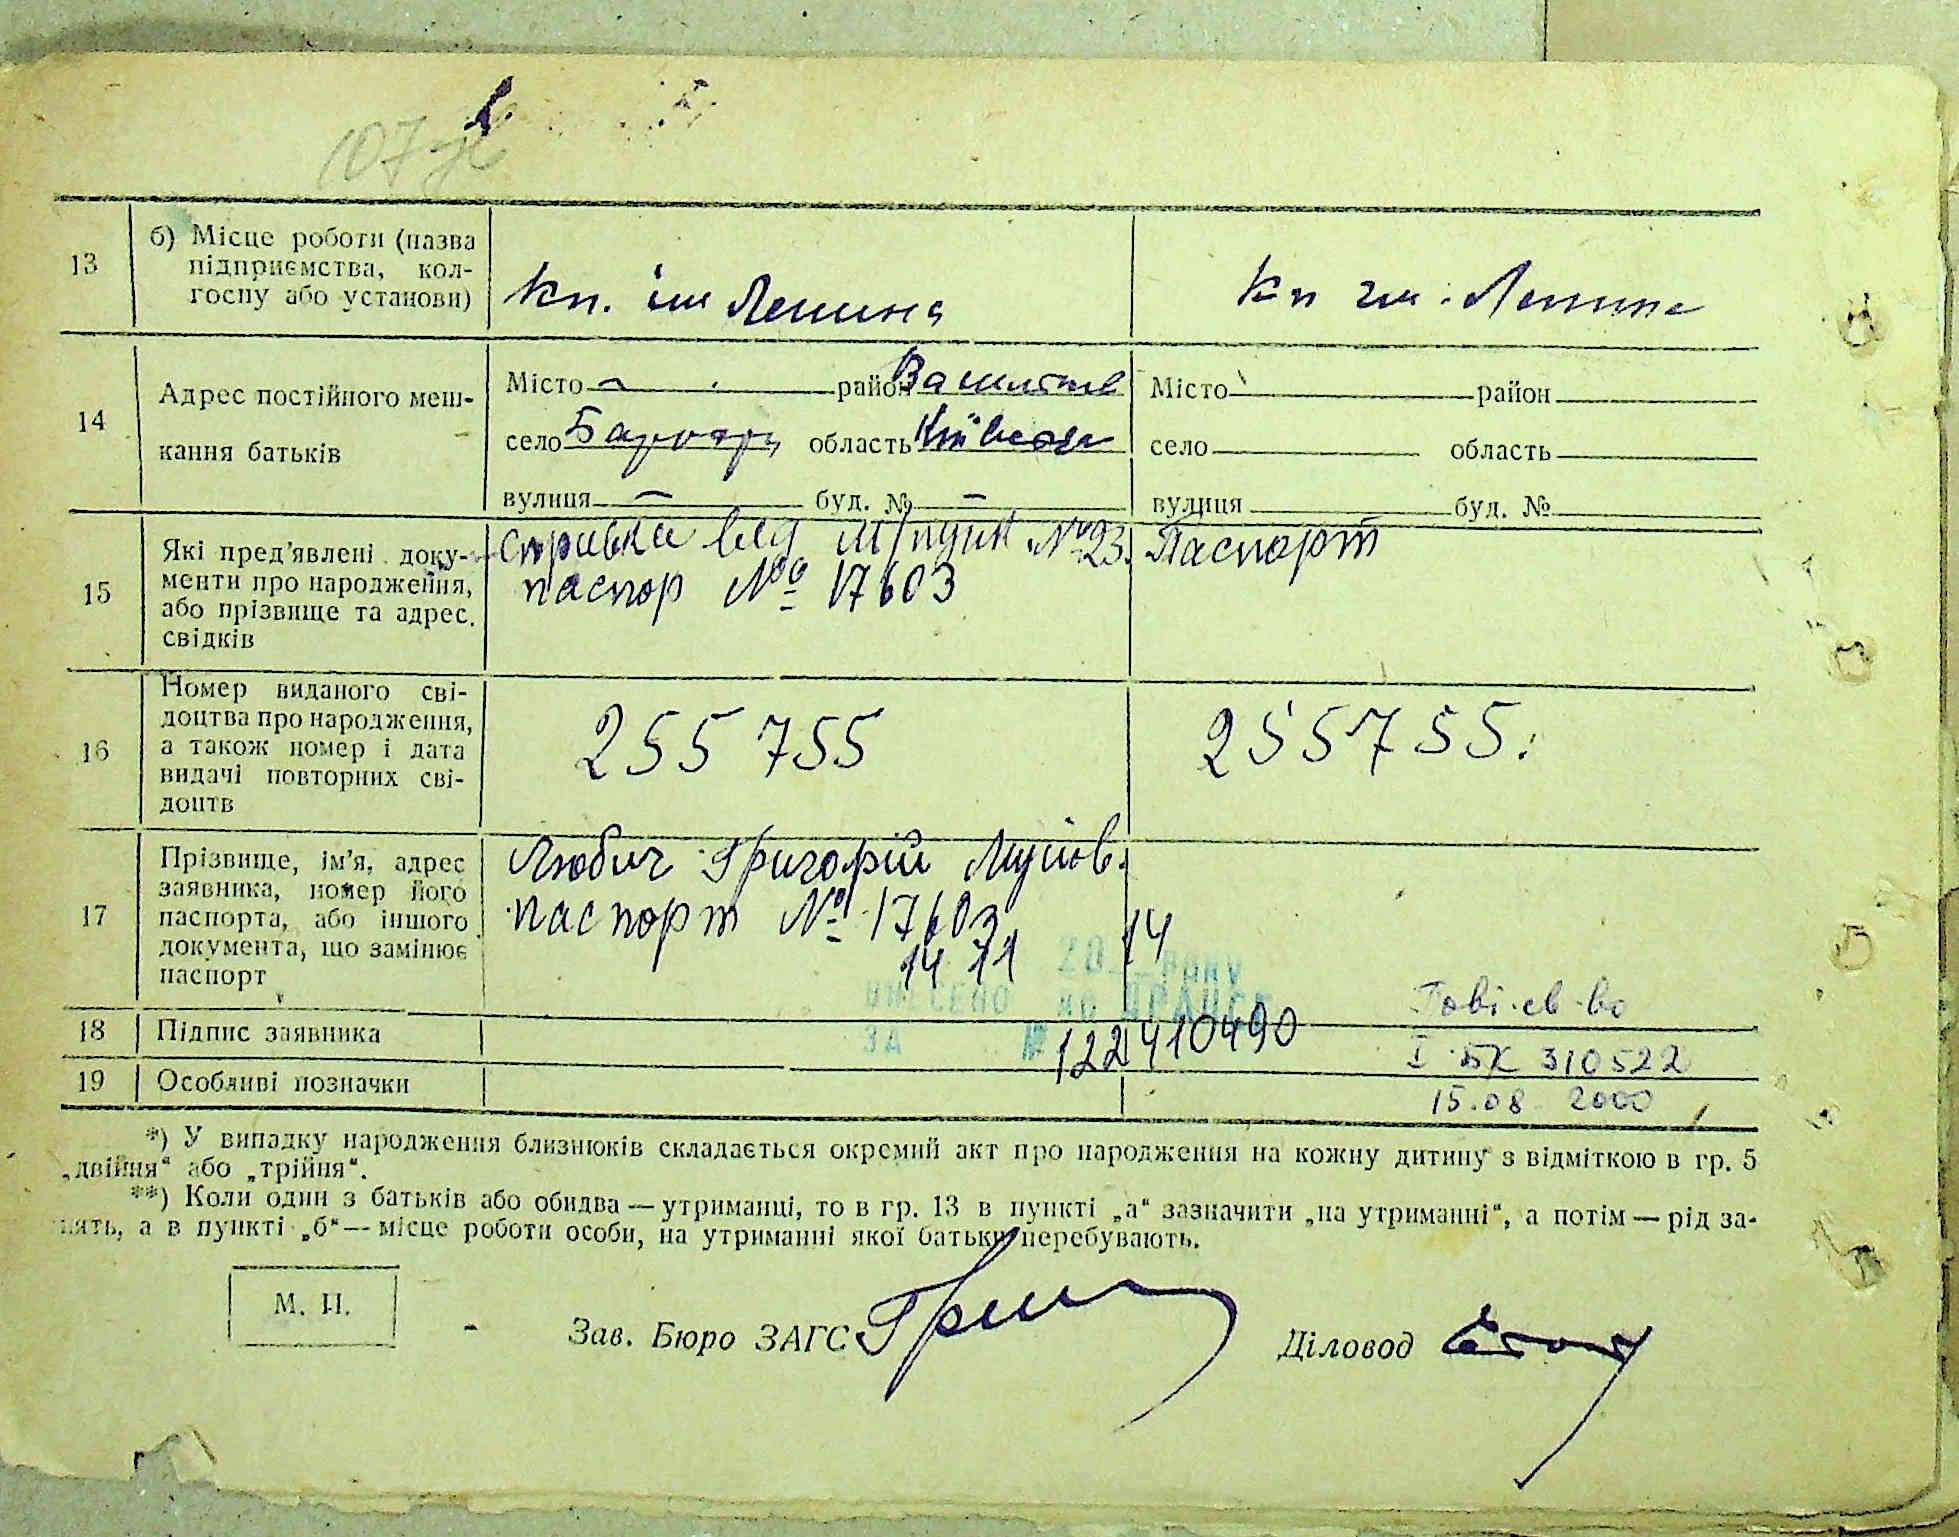 107
13
б) Місце роботи (назва
підприємства, кол-
госпу або установи)
кп. ім Ленина
кп им. Ленина
14
Адрес постійного меш-
кання батьків
Місто район Василькв
село область Київська
вулиця — буд. № —
Місто район
село область
вулиця буд. №
15
Які пред'явлені доку-
менти про народження,
або прізвище та адрес.
свідків
справка від м/пунк №23.
паспор № 17603
Паспорт
16
Номер виданого сві-
доцтва про народження,
а також номер і дата
видачі повторних сві-
доцтв
255755
255755.
17
Прізвище, ім'я, адрес
заявника, номер його
паспорта, або іншого
документа, що замінює
паспорт
Любич Григорій
паспорт № 17603
14 11 2014 року
ВНЕСЕНО ДО ДРАЦСГ
ЗА № 122410490
18
Підпис заявника
19
Особливі позначки
Пові.св-во
І БК 310522
15.08 2000
*) У випадку народження близнюків складається окремий акт про народження на кожну дитину з відміткою в гр. 5
„двійня“ або „трійня“.
**) Коли один з батьків або обидва — утриманці, то в гр. 13 в пункті „а“ зазначити „на утриманні“, а потім — рід за-
нять, а в пункті „б“ — місце роботи особи, на утриманні якої батьки перебувають.
М. П.
Зав. Бюро ЗАГС
Діловод